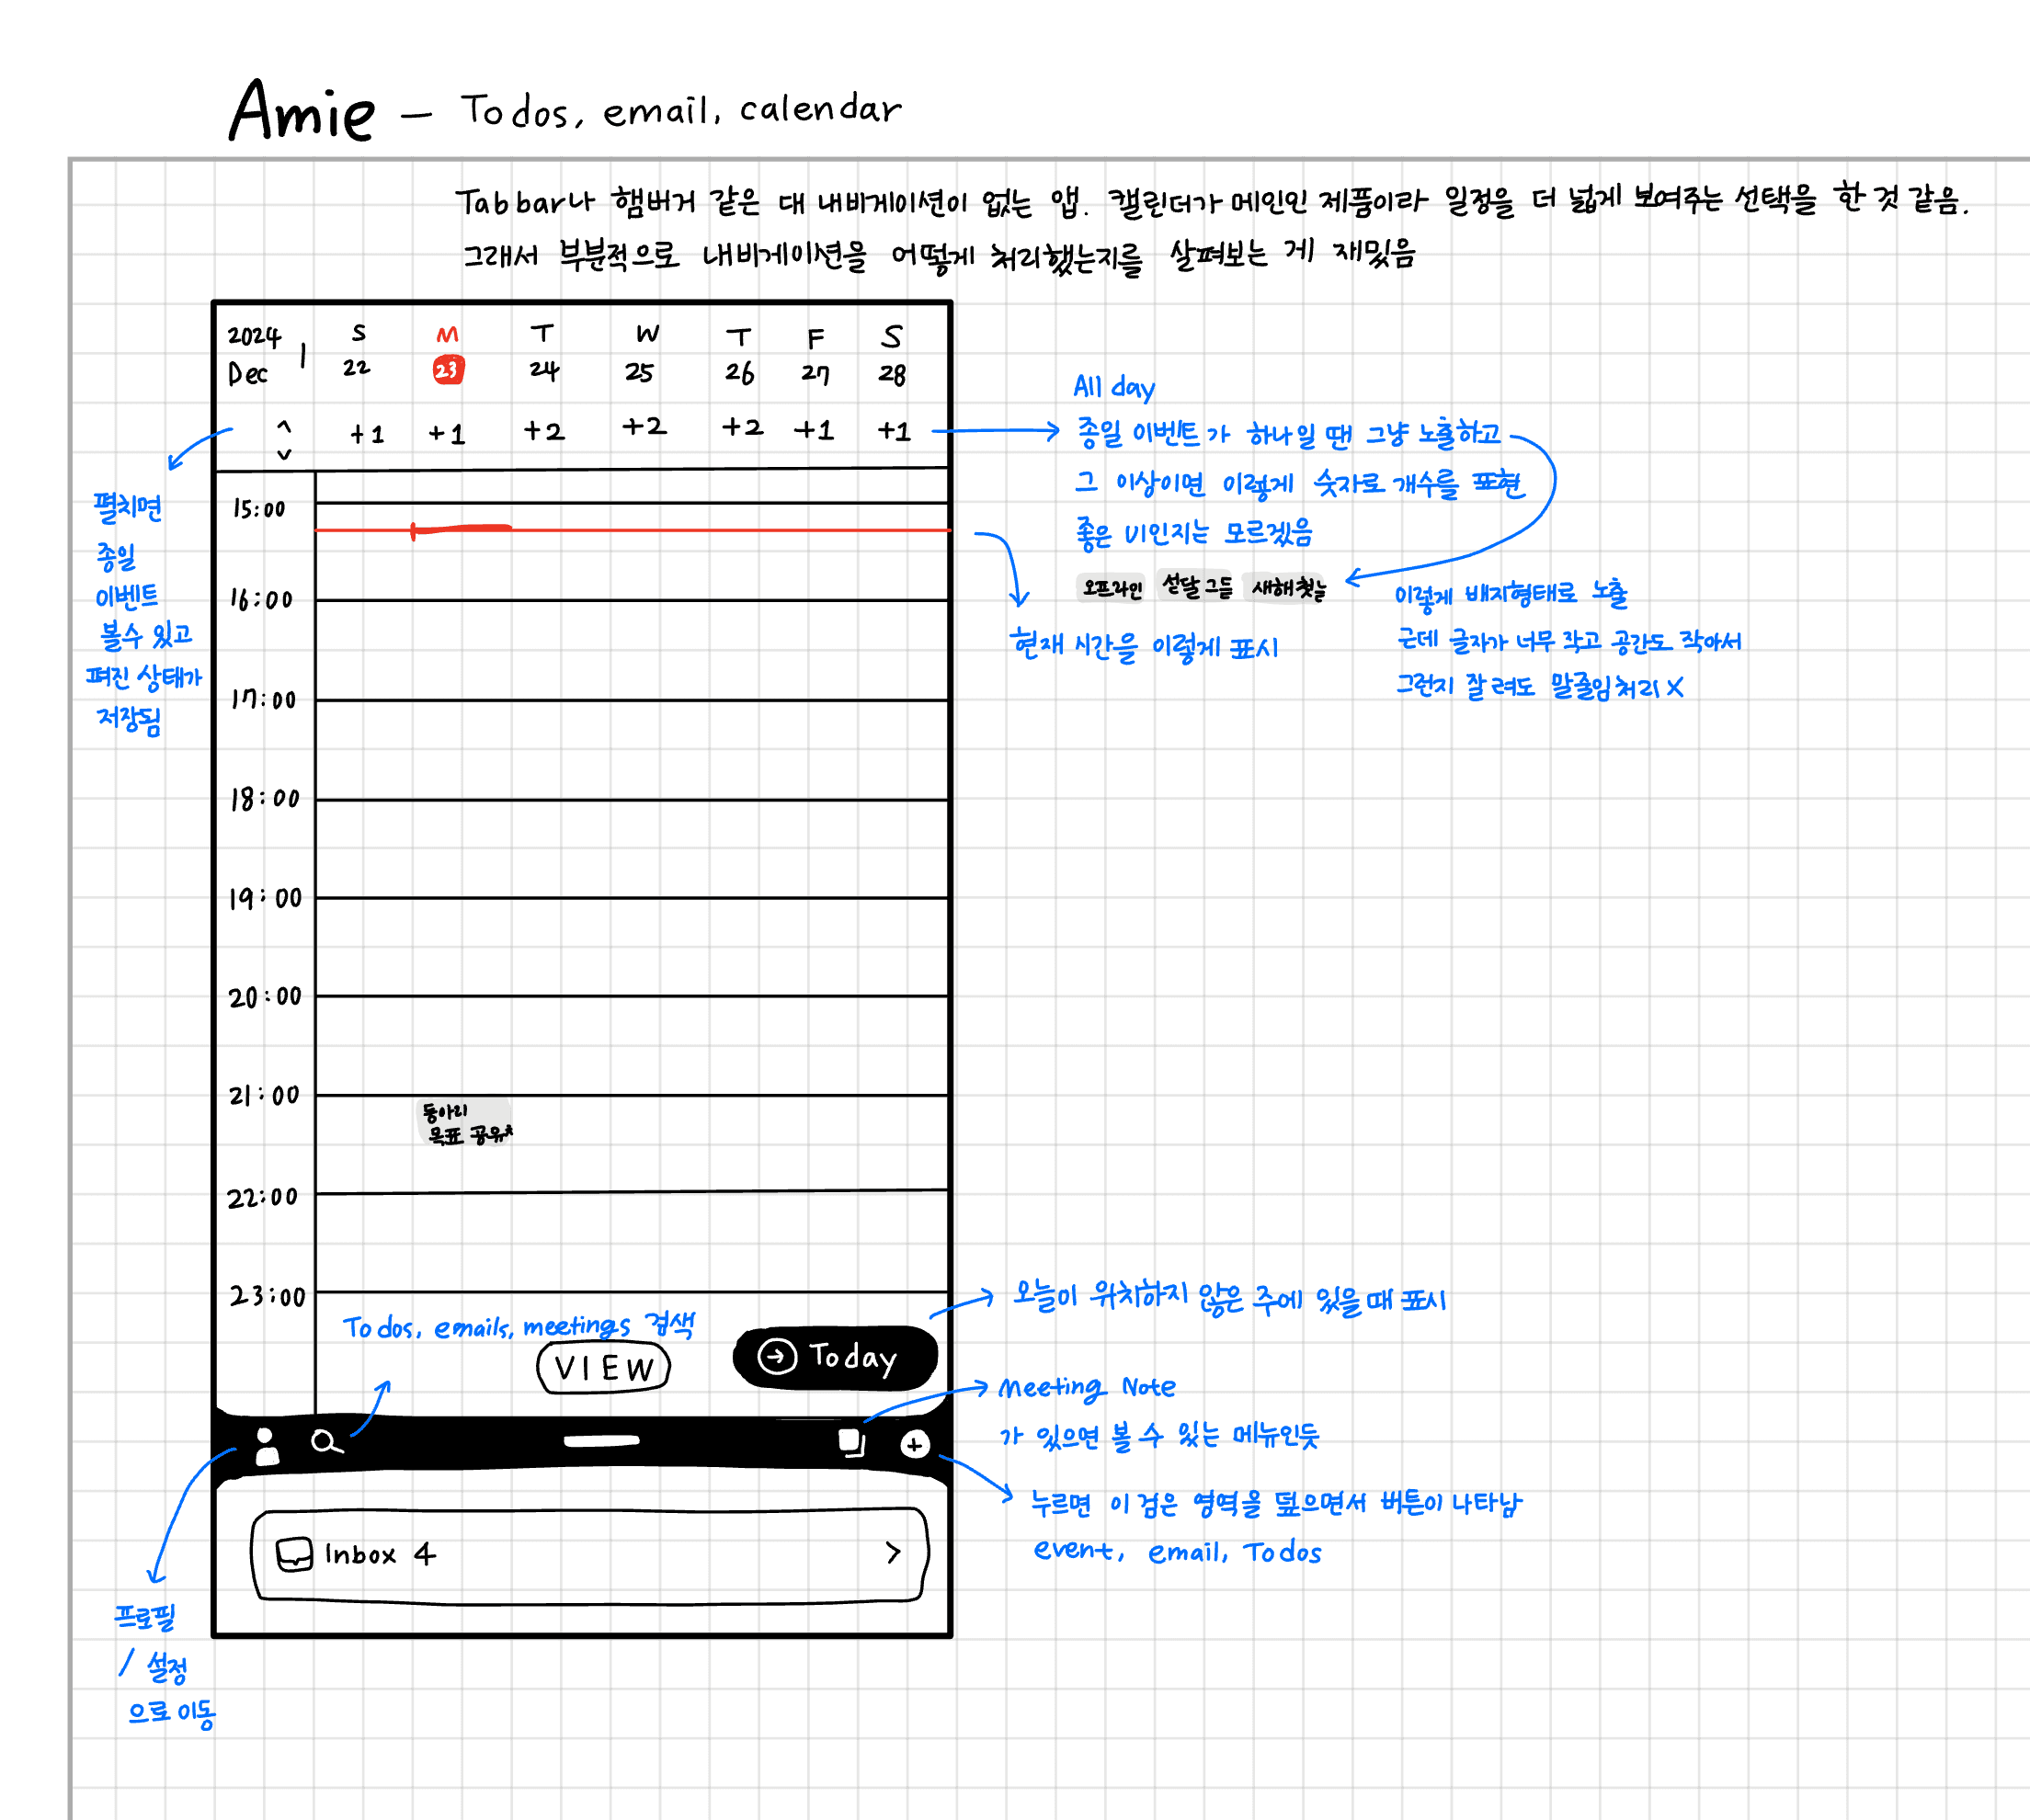 Amie – Todos, email, calendar
Tabbar나 햄버거 같은 대 내비게이션이 없는 앱. 캘린더가 메인인 제품이라 일정을 더 넓게 보여주는 선택을 한 것 같음.
그래서 부분적으로 내비게이션을 어떻게 처리했는지를 살펴보는 게 재밌음
2024 S M T W T F S
Dec 22 23 24 25 26 27 28
+1 +1 +2 +2 +2 +1 +1
All day
종일 이벤트가 하나일 땐 그냥 노출하고
그 이상이면 이렇게 숫자로 개수를 표현
좋은 UI인지는 모르겠음
오프라인 섣달 그믐 새해 첫날
이렇게 배지형태로 노출
근데 글자가 너무 작고 공간도 작아서
그런지 잘려도 말줄임처리 X
현재 시간을 이렇게 표시
펼치면
종일
이벤트
볼수 있고
펴진 상태가
저장됨
15:00
16:00
17:00
18:00
19:00
20:00
21:00
동아리
목표 공유
22:00
23:00
Todos, emails, meetings 검색
VIEW
Today
오늘이 위치하지 않은 주에 있을 때 표시
Meeting Note
가 있으면 볼 수 있는 메뉴인듯
누르면 이 검은 영역을 덮으면서 버튼이 나타남
event, email, Todos
Inbox 4
프로필
/ 설정
으로 이동